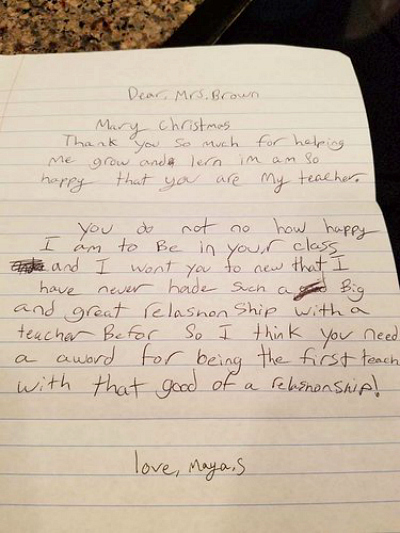 Dear, Mrs. Brown
Mary Christmas
Thank you so much for helping
me grow and lern im am so
happy that you are my teacher.
you do not no how happy
I am to Be in your class
and I wont you to new that I
have never hade such a Big
and great relashon ship with a
teacher Befor So I think you need
a award for being the first teach
with that good of a relashonship!
love, Maya.S